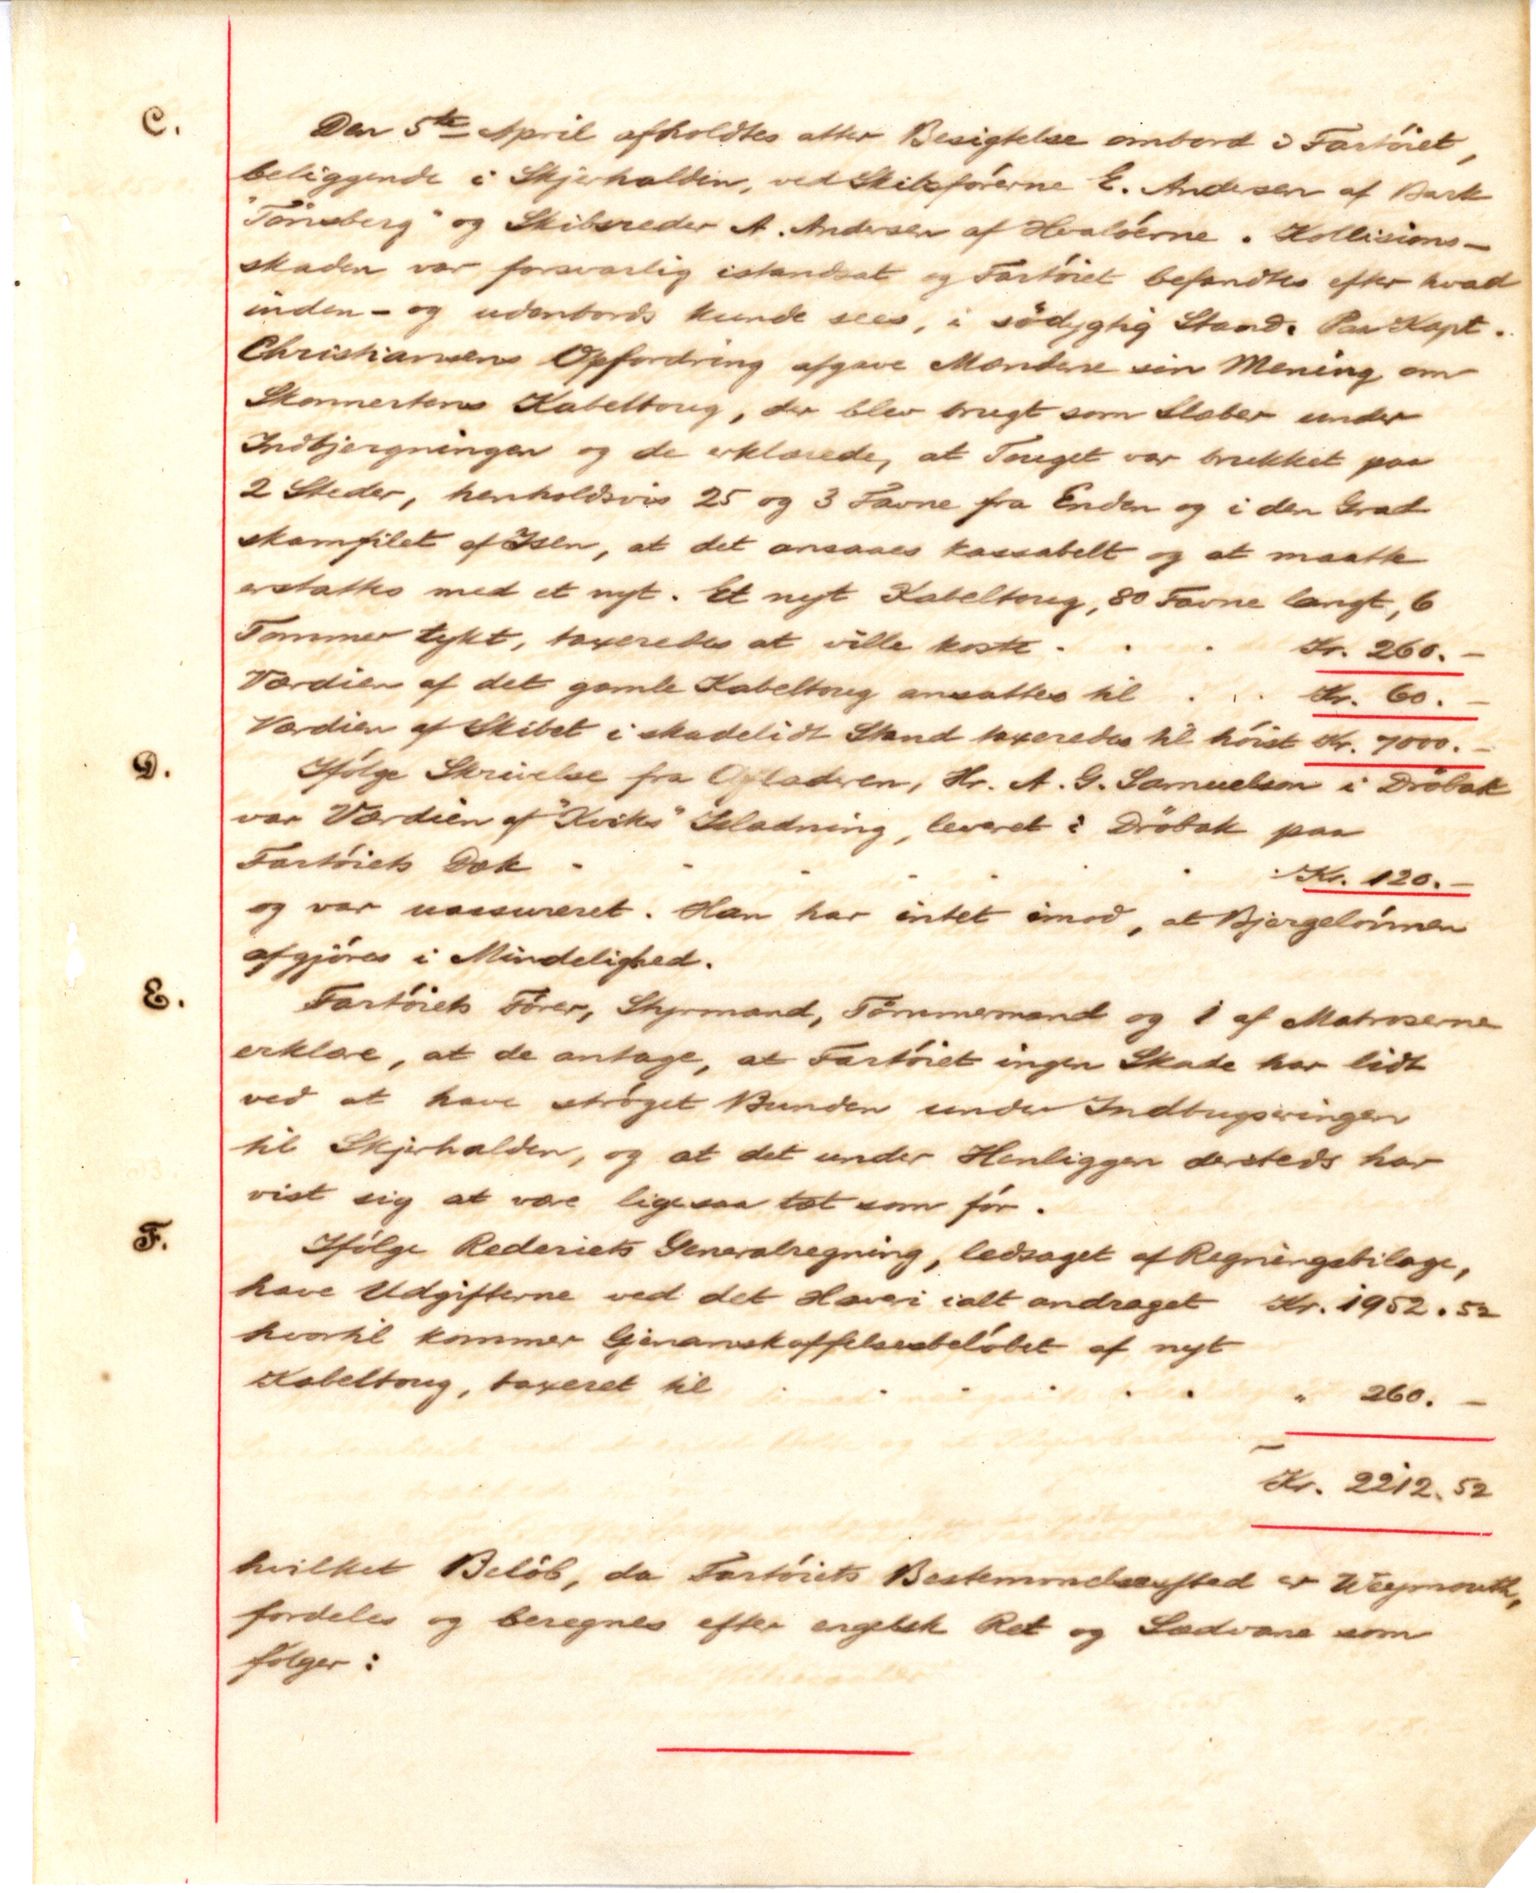 C.
Den 5te April afholdtes atter Besigtelse ombord i Fartöiet,
beliggende i Skjerhalden, ved Skibsförerne E. Andersen af Bark
"Tönsberg" og Skibsreder A. Andersen af Hvalöerne. Kollisions-
skaden var forsvarlig istandsat og Fartöiet befandtes efter hvad
inden- og udenbords kunde sees, i södygtig Stand. Paa Kapt.
Christiansens Opfordring afgave Mændene sin Mening om
Skonnertens Kabeltoug, der blev brugt som Slæber under
Indbjergningen og de erklærede, at Touget var brukket paa
2 Steder, henholdsvis 25 og 3 Favne fra Enden og i den Grad
skamfilet af Isen, at det ansaaes kassabelt og at maatte
erstattes med et nyt. Et nyt Kabeltoug, 80 Favne langt, 6
Tommer tykt, taxeredes at ville koste . . . Kr. 260. —
Værdien af det gamle Kabeltoug ansattes til . . . Kr. 60. —
Værdien af Skibet i skadelidt Stand taxeredes til höist Kr. 7000. —
D.
Ifölge Skrivelse fra Afladeren, Hr. A. G. Samuelson i Dröbak
var Værdien af "Kviks" Isladning, leveret i Dröbak paa
Fartöiets Dæk . . . . . . . Kr. 120. —
og var uassureret. Han har intet imod, at Bjergelönnen
afgjöres i Mindelighed.
E.
Fartöiets Förer, Styrmand, Tömmermand og 1 af Matroserne
erklære, at de antage, at Fartöiet ingen Skade har lidt
ved at have ströget Bunden under Indbugseringen
til Skjerhalden, og at det under Henliggen dersteds har
vist sig at være ligesaa tæt som för.
F.
Ifölge Rederiets Generalregning, ledsaget af Regningsbilage,
have Udgifterne ved det Haveri ialt andraget Kr. 1952. 52
hvortil kommer Gjenanskaffelsesbelöbet af nyt
Kabeltoug, taxeret til . . . . . . " 260. —
Kr. 2212. 52
hvilket Belöb, da Fartöiets Bestemmelsessted er Weymouth,
fordeles og beregnes efter engelsk Ret og Sædvane som
fölger: